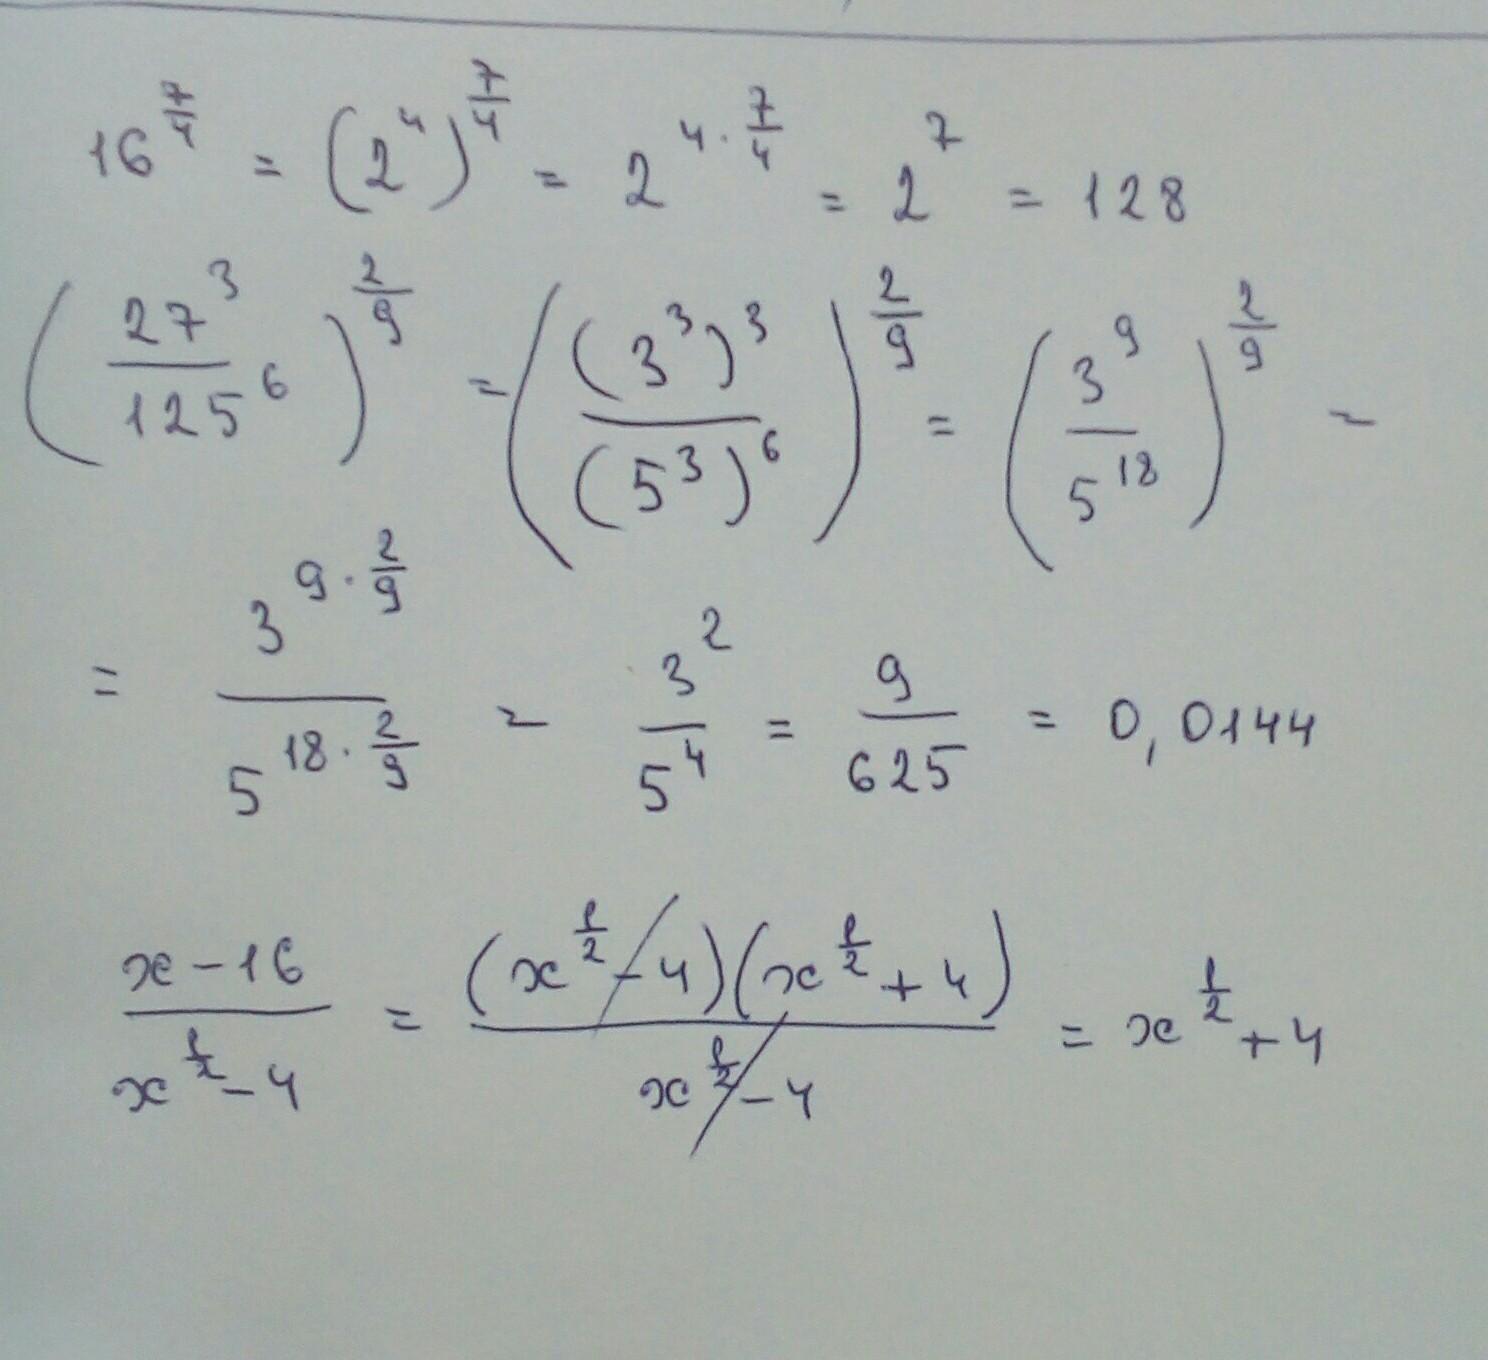 16^{\frac{7}{4}} = (2^4)^{\frac{7}{4}} = 2^{4 \cdot \frac{7}{4}} = 2^7 = 128
\left(\frac{27^3}{125^6}\right)^{\frac{2}{9}} = \left(\frac{(3^3)^3}{(5^3)^6}\right)^{\frac{2}{9}} = \left(\frac{3^9}{5^{18}}\right)^{\frac{2}{9}} =
= \frac{3^{9 \cdot \frac{2}{9}}}{5^{18 \cdot \frac{2}{9}}} = \frac{3^2}{5^4} = \frac{9}{625} = 0,0144
\frac{x-16}{x^{\frac{1}{2}}-4} = \frac{(x^{\frac{1}{2}}-4)(x^{\frac{1}{2}}+4)}{x^{\frac{1}{2}}-4} = x^{\frac{1}{2}}+4